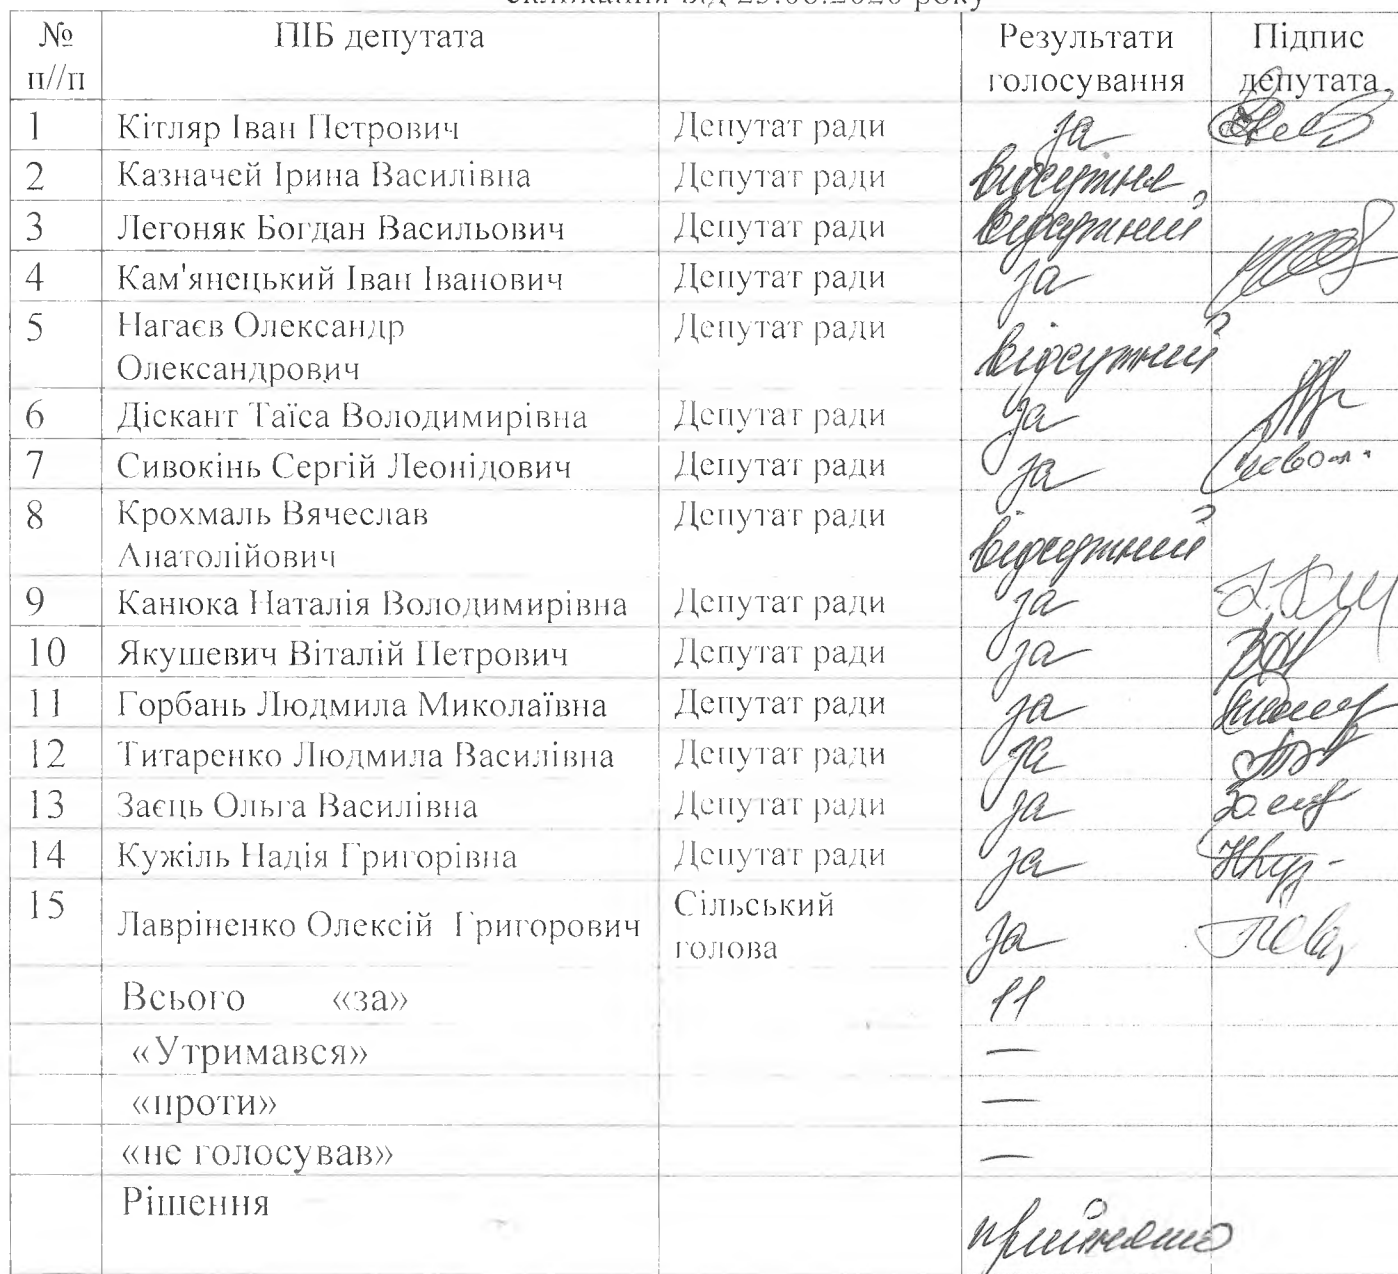 скликання від 23.06.2020 року
№ ПІБ депутата Результати Підпис
п//п голосування депутата
1 Кітляр Іван Петрович Депутат ради за
2 Казначей Ірина Василівна Депутат ради відсутня
3 Легоняк Богдан Васильович Депутат ради відсутній
4 Кам'янецький Іван Іванович Депутат ради за
5 Нагаєв Олександр Депутат ради
Олександрович відсутний
6 Діскант Таїса Володимирівна Депутат ради за
7 Сивокінь Сергій Леонідович Депутат ради за
8 Крохмаль Вячеслав Депутат ради
Анатолійович відсутний
9 Канюка Наталія Володимирівна Депутат ради за
10 Якушевич Віталій Петрович Депутат ради за
11 Горбань Людмила Миколаївна Депутат ради за
12 Титаренко Людмила Василівна Депутат ради за
13 Заєць Ольга Василівна Депутат ради за
14 Кужіль Надія Григорівна Депутат ради за
15 Лавріненко Олексій Григорович Сільський за
голова
Всього «за» 11
«Утримався» —
«проти» —
«не голосував» —
Рішення прийнято